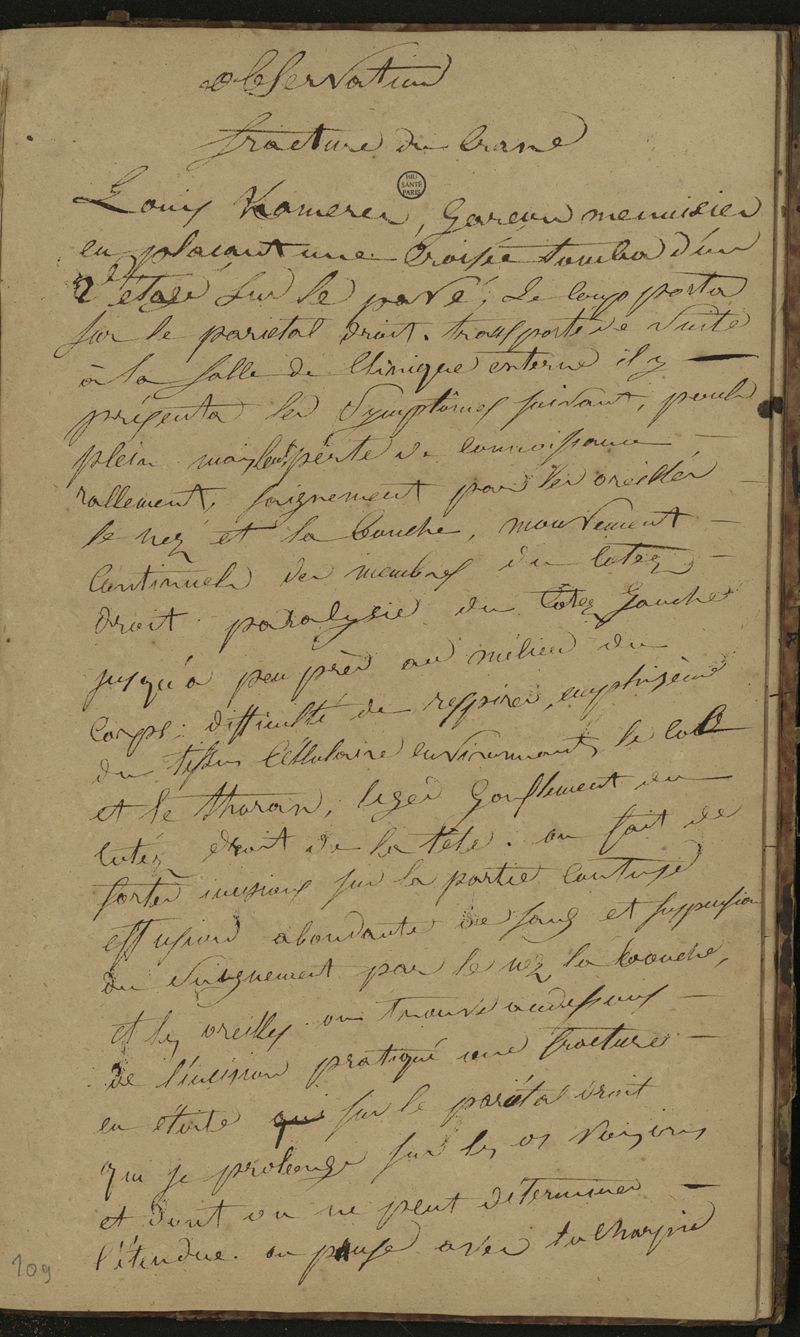 observation
fracture du Crane
BIU SANTÉ PARIS
Louis Kamerer, Garcon menuisier
en placant une Croisée tomba d'un
2e étage sur le pavé, Le Coup porta
sur le parietal droit. transporté de Suite
à la Salle de Clinique externe il y
présenta les Symptômes suivant, pouls
plein mais lent, perte de Connoissance
rallement, saignement par les oreilles
le nez et la bouche, mouvement
Continuels des membres du Cotez
droit paralysie du Cotez Gauche
jusqu'a peu près au milieu du
Corps. difficulté de respirer, emphisème
du tissu Cellulaire environnant le Col
et le thorax, leger Gonflement du
Cotéz droit de la tête. on fait de
fortes incisions sur la partie Contuse
effusion abondante de sang et suppression
du Saignement par le nez, la bouche,
et les oreilles on trouve audessous
de l'incision pratiqué une fracture
en étoile sur le pariétal droit
qui se prolonge sur les os voisins
et dont on ne peut déterminer
l'étendue. on panse avec la charpie
109